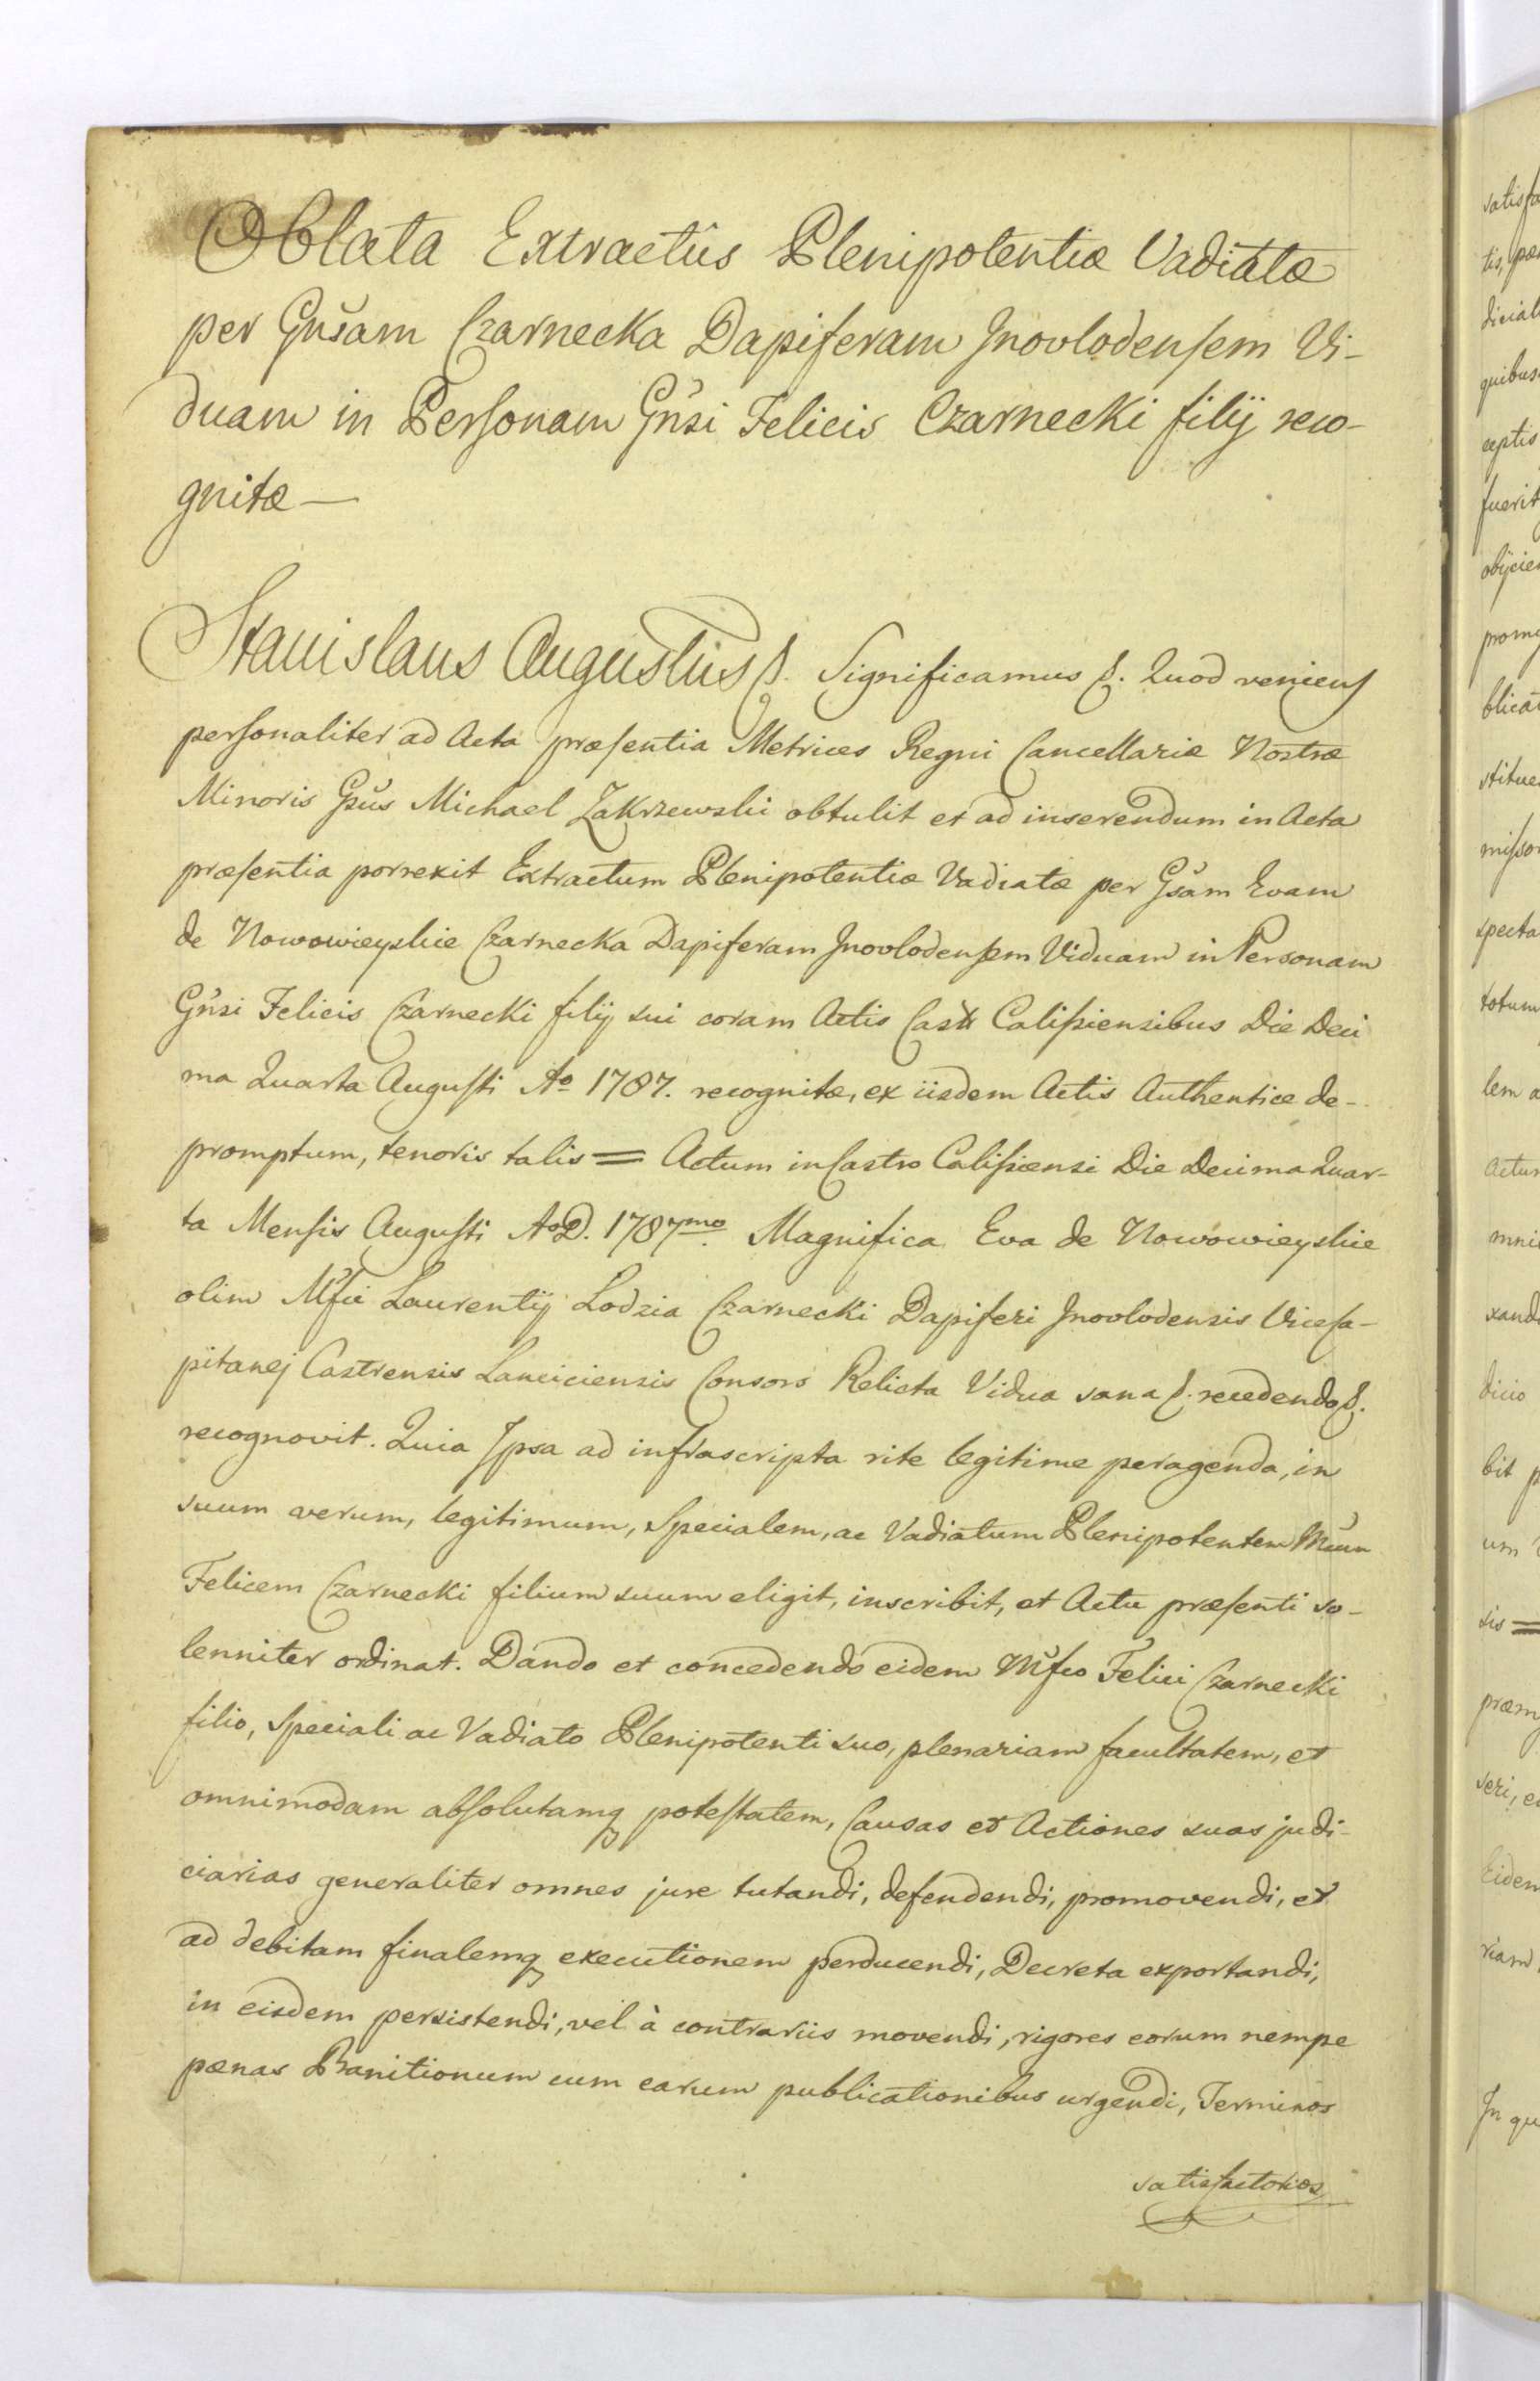 Oblata Extractûs Plenipotentiæ Vadiatæ
per Gnsam Czarnecka Dapiferam Inovlodensem Vi-
duam in Personam Gnsi Felicis Czarnecki filij reco-
gnitæ —
Stanislaus Augustus &. Significamus &. Quod veniens
personaliter ad Acta præsentia Metrices Regni Cancellariæ Nostræ
Minoris Gsus Michael Zakrzewski obtulit et ad inserendum in Acta
præsentia porrexit Extractum Plenipotentiæ Vadiatæ per Gsam Evam
de Nowowieyskie Czarnecka Dapiferam Inovlodensem Viduam in Personam
Gnsi Felicis Czarnecki filij sui coram Actis Castr Calisiensibus Die Deci
ma Quarta Augusti Ao 1787. recognitæ, ex iisdem Actis Authentice de-
promptum, tenoris talis = Actum in Castro Calisiensi Die Decima Quar-
ta Mensis Augusti AoD. 1787mo. Magnifica Eva de Nowowieyskie
olim Mfci Laurentij Lodzia Czarnecki Dapiferi Inovlodensis Viceca-
pitanej Castrensis Lanciciensis Consors Relicta Vidua sana &. recedendo &.
recognovit. Quia Ipsa ad infrascripta rite legitime peragenda, in
suum verum, legitimum, Specialem, ac Vadiatum Plenipotentem
Felicem Czarnecki filium suum eligit, inscribit, et Actu præsenti so-
lenniter ordinat. Dando et concedendo eidem Mfco Felici Czarnecki
filio, Speciali ac Vadiato Plenipotenti suo, plenariam facultatem, et
omnimodam absolutamq potestatem, Causas et Actiones suas judi-
ciarias generaliter omnes jure tutandi, defendendi, promovendi, et
ad debitam finalemq executionem perducendi, Decreta exportandi,
in eisdem persistendi, vel à contrariis movendi, rigores eorum nempe
pænas Banitionum cum earum publicationibus urgendi, Terminos
satisfactorios